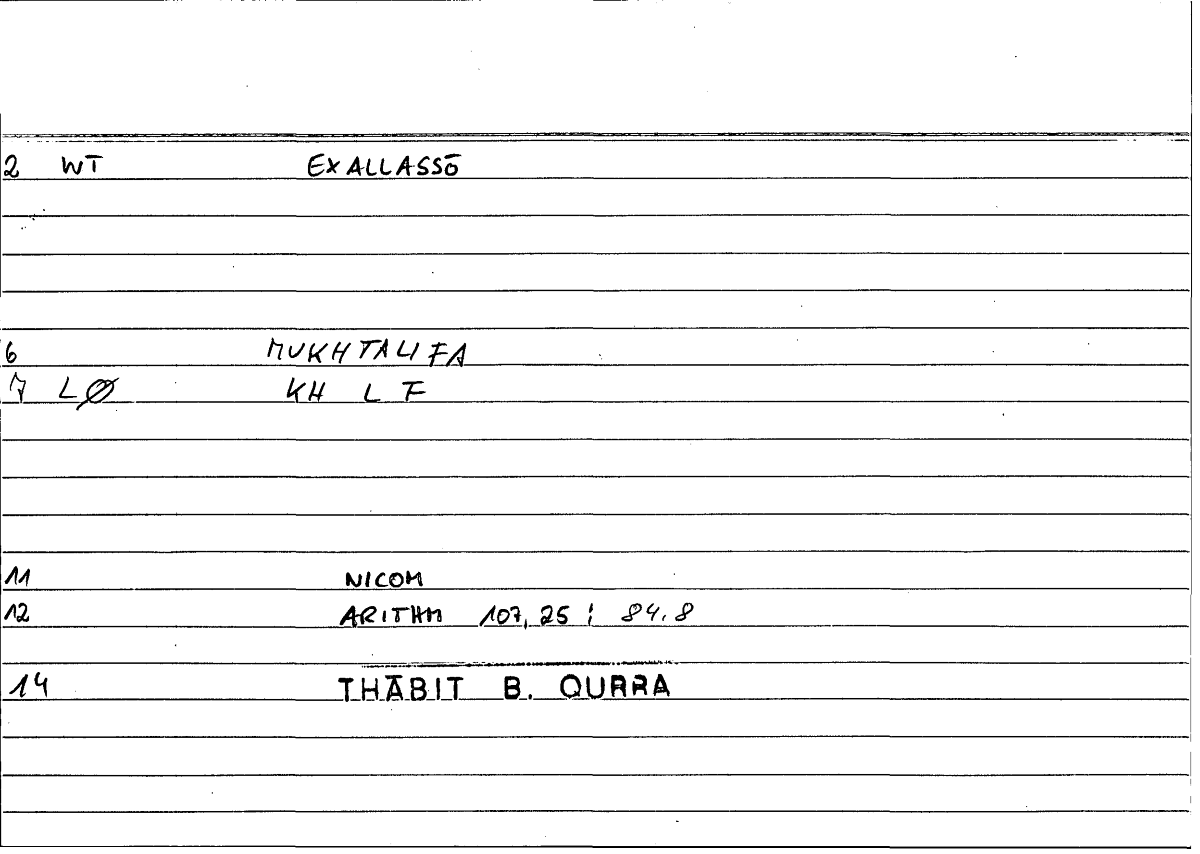 2 WT EXALLASSŌ
6 MUKHTALIFA
7 LØ KH L F
11 NICOM
12 ARITHM 107,25 ; 84.8
14 THĀBIT B. QURRA